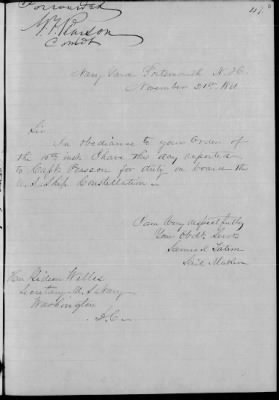 Forwarded
Comdt
Navy Yard Portsmouth N.H.
November 21st 1861
Sir
In obedience to your Order of
the inst I have this day reported
to Capt Pearson for duty on board the
U.S. Ship Constellation
I am Very respectfully
Your Obdt Servt
Samuel Tatem
Sail Maker
Hon Gideon Welles
Secretary U.S. Navy
Washington
D.C.